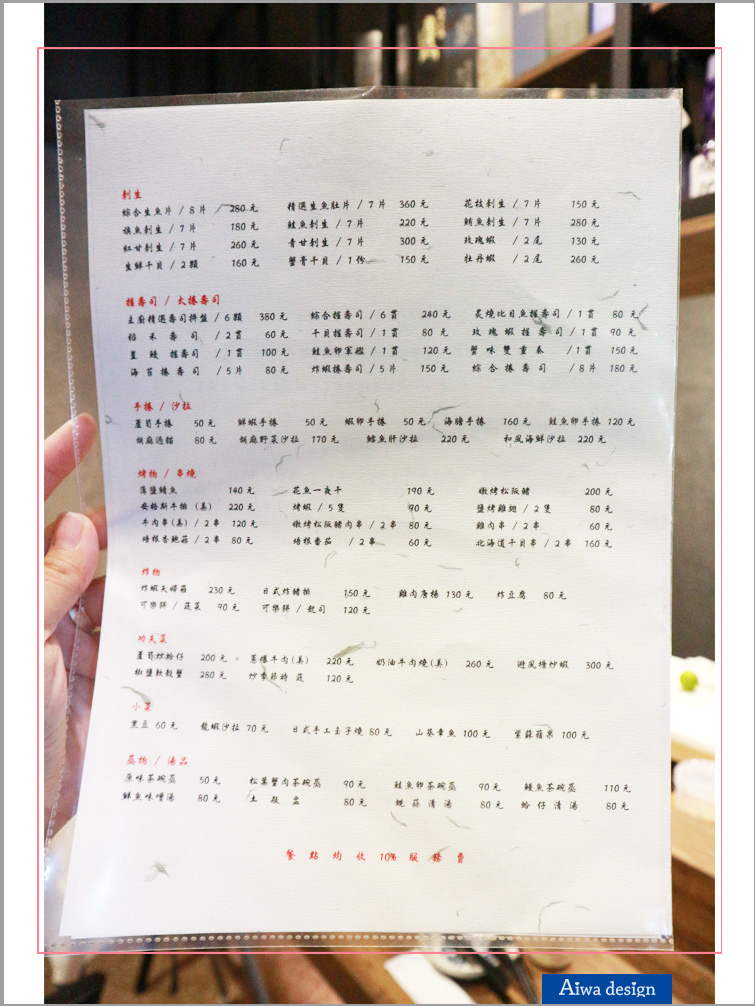 刺生
綜合生魚片 / 8 片 280 元 精選生魚肚片 / 7 片 360 元 花枝刺生 / 7 片 150 元
旗魚刺生 / 7 片 180 元 鮭魚刺生 / 7 片 220 元 鮪魚刺生 / 7 片 280 元
紅甘刺生 / 7 片 260 元 青甘刺生 / 7 片 300 元 玫瑰蝦 / 2 尾 130 元
生鮮干貝 / 2 顆 160 元 蟹膏干貝 / 1 份 150 元 牡丹蝦 / 2 尾 260 元
握壽司 / 太捲壽司
主廚精選壽司拼盤 / 6 顆 380 元 綜合握壽司 / 6 貫 240 元 炙燒比目魚握壽司 / 1 貫 80 元
稻禾壽司 / 2 貫 60 元 干貝握壽司 / 1 貫 80 元 玫瑰蝦握壽司 / 1 貫 90 元
星鰻握壽司 / 1 貫 100 元 鮭魚卵軍艦 / 1 貫 120 元 蟹味雙重奏 / 1 貫 150 元
海苔捲壽司 / 5 片 80 元 炸蝦捲壽司 / 5 片 150 元 綜合捲壽司 / 8 片 180 元
手捲 / 沙拉
蘆筍手捲 50 元 鮮蝦手捲 50 元 蝦卵手捲 50 元 海膽手捲 160 元 鮭魚卵手捲 120 元
胡麻過貓 80 元 胡麻野菜沙拉 170 元 鱈魚肝沙拉 220 元 和風海鮮沙拉 220 元
烤物 / 串燒
薄鹽鯖魚 140 元 花魚一夜干 190 元 嫩烤松阪豬 200 元
安格斯牛排 (美) 220 元 烤蝦 / 5 隻 90 元 鹽烤雞翅 / 2 隻 80 元
牛肉串(美) / 2 串 120 元 嫩烤松阪豬肉串 / 2 串 80 元 雞肉串 / 2 串 60 元
培根杏鮑菇 / 2 串 80 元 培根番茄 / 2 串 60 元 北海道干貝串 / 2 串 160 元
炸物
炸蝦天婦羅 230 元 日式炸豬排 150 元 雞肉唐揚 130 元 炸豆腐 80 元
可樂餅 / 蔬菜 90 元 可樂餅 / 起司 120 元
功夫菜
蘆筍炒蛤仔 200 元 蔥爆牛肉(美) 220 元 奶油牛肉燒(美) 260 元 避風塘炒蝦 300 元
椒鹽軟殼蟹 280 元 炒季節時蔬 120 元
小菜
黑豆 60 元 龍蝦沙拉 70 元 日式手工玉子燒 80 元 山葵章魚 100 元 紫蘇蘋果 100 元
蒸物 / 湯品
原味茶碗蒸 50 元 松葉蟹肉茶碗蒸 90 元 鮭魚卵茶碗蒸 90 元 鰻魚茶碗蒸 110 元
鮮魚味噌湯 80 元 土瓶蒸 80 元 蜆蒜清湯 80 元 蛤仔清湯 80 元
餐點均收 10% 服務費
Aiwa design